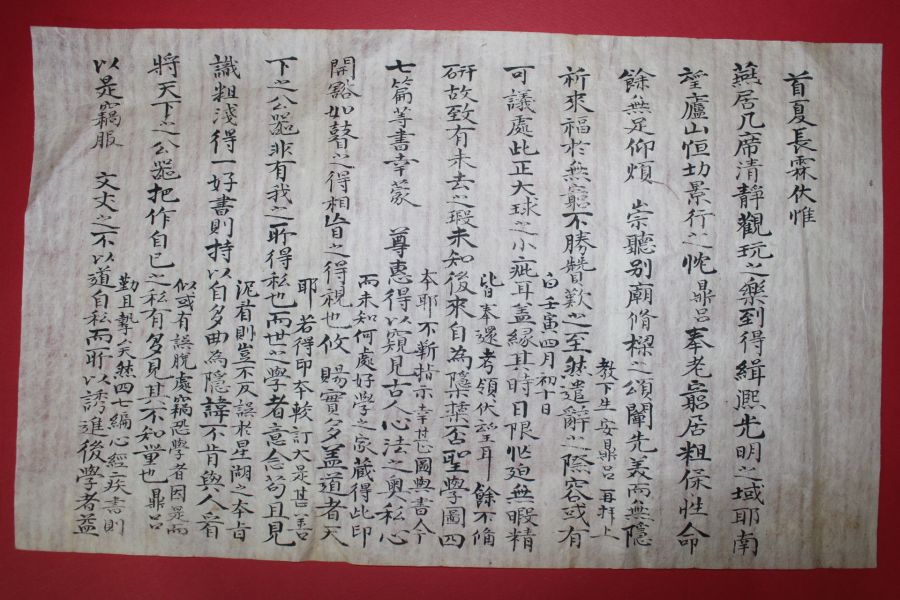 首夏長霖伏惟
燕居几席清靜觀玩之樂到得緝熙光明之域耶南
望廬山恒切景行之忱鼎呂奉老窮居粗保性命
餘無足仰煩 崇聽別廟脩樑之頌闡先美而無隱
祈來福於無窮不勝贊歎之至然遣辭之際容或有
可議處此正大球之小疵耳盖緣其時日限忙迫無暇精
硏故致有未去之瑕未知後來自為隱否聖學圖四
七篇等書幸蒙 尊惠得以窺見古人心法之奧私心
開豁如聾之得相瞽之得視也攸賜實多盖道者天
下之公器非有我之所得私也而世之學者意念苟且見
識粗淺得一好書則持以自多曲為隱諱不肯與人看
將天下之公器把作自己之私有多見其不知量也鼎呂
以是竊服 文丈之不以道自私而所以誘進後學者益
勤且摯矣然四七編心經疾書則
似或有誤脫處竊恐學者因是而
泥着則豈不反誤於星湖之本旨
耶 若得印本較訂大是甚善
而未知何處好學之家藏得此印
本耶不靳指示幸甚圖與書今
皆奉還考領伏望耳 餘不備
白壬寅四月初十日
教下生安鼎呂再拜上